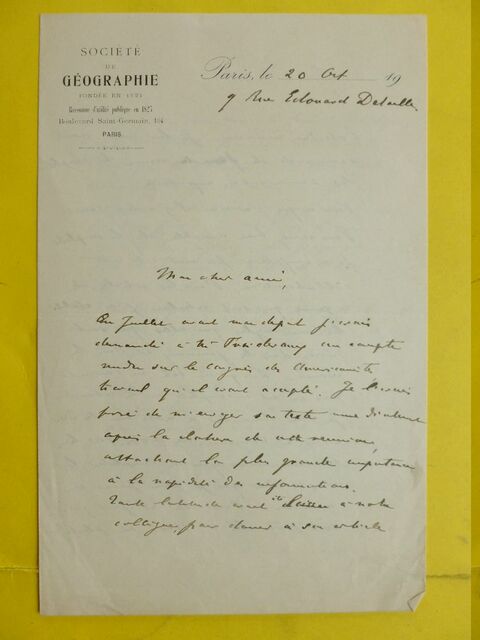 SOCIÉTÉ
DE
GÉOGRAPHIE
FONDÉE EN 1821
Reconnue d'utilité publique en 1827
Boulevard Saint-Germain, 184
PARIS
Paris, le 20 Oct 19
9 Rue Edouard Detaille
Mon cher ami,
En Juillet avant mon départ j'avais
demandé à Mr un compte
rendu sur le congrès des Américanistes
travail qu'il avait accepté. Je l'avais
prié de m'envoyer son texte immédiatement
après la clôture de cette réunion,
attachant la plus grande importance
à la rapidité des informations.
Toute latitude avait été laissée à notre
collègue pour donner à son article